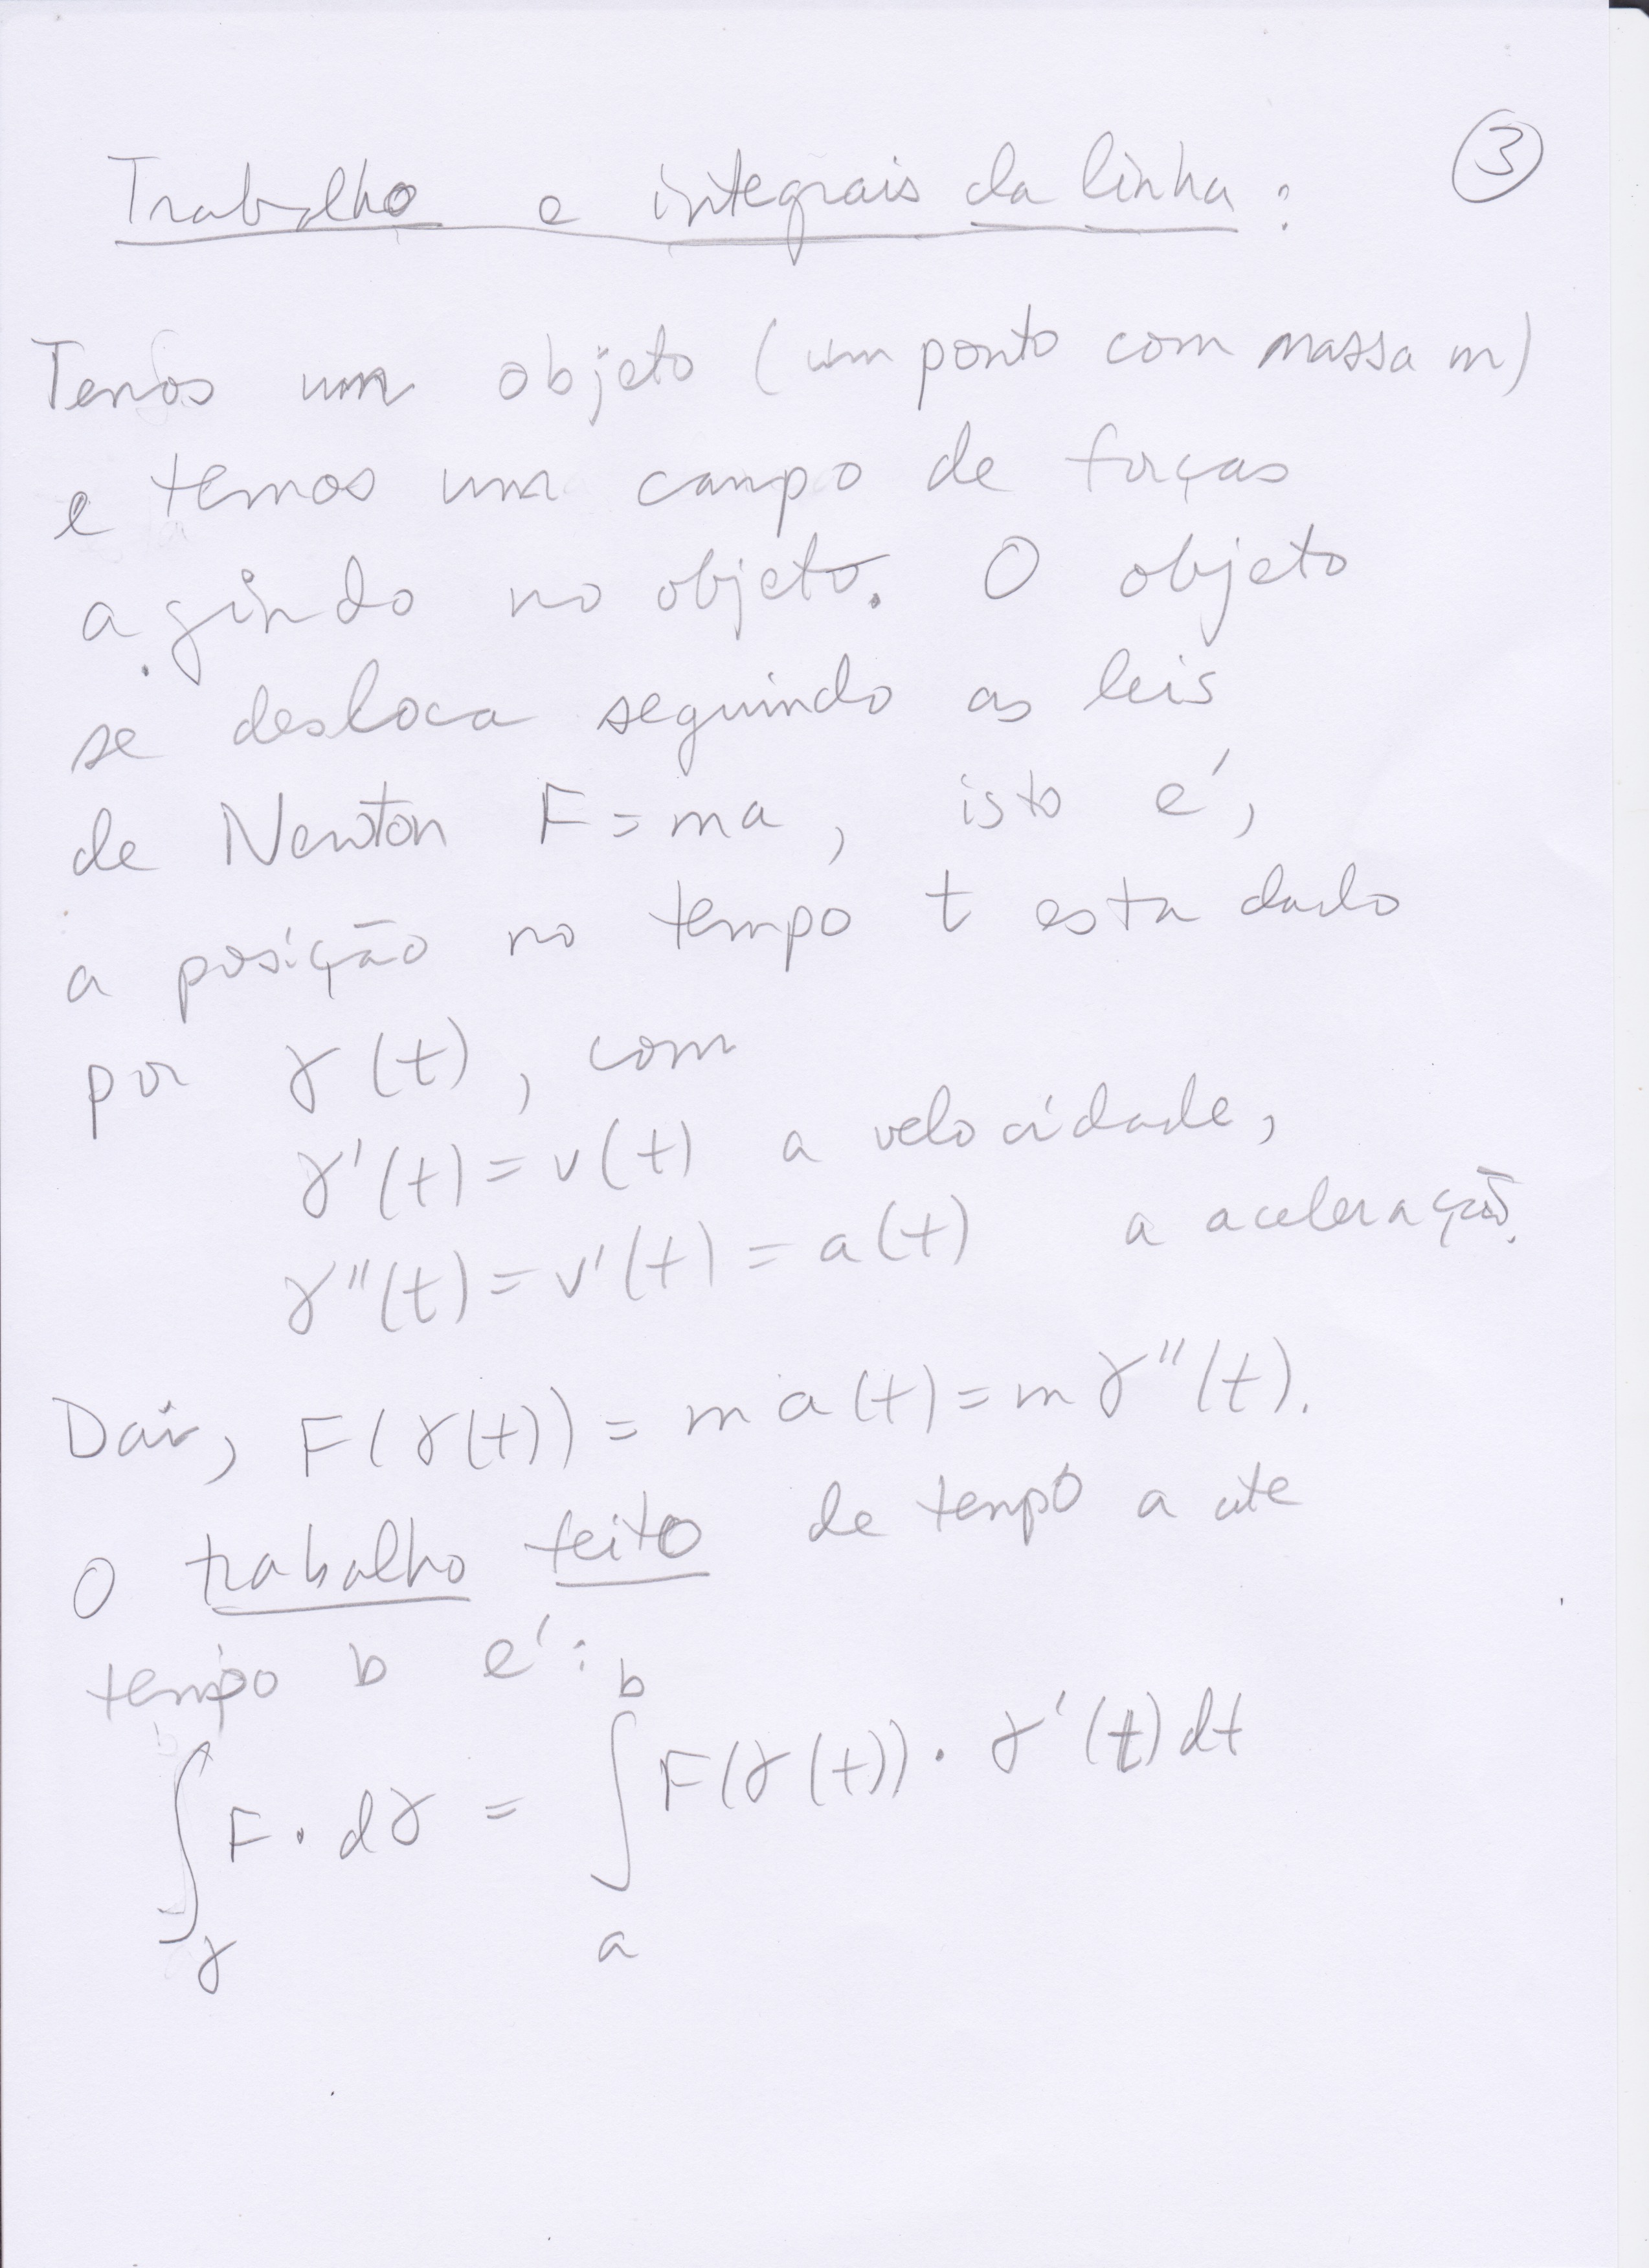 ③
Trabalho e integrais da linha:
Temos um objeto (um ponto com massa m)
e temos um campo de forças
agindo no objeto. O objeto
se desloca seguindo as leis
de Newton F = ma, isto é,
a posição no tempo t esta dado
por γ(t), com
γ'(t) = v(t) a velocidade,
γ''(t) = v'(t) = a(t) a aceleração.
Daí, F(γ(t)) = m a(t) = m γ''(t).
O trabalho feito de tempo a ate
tempo b é:
∫_γ F · dγ = ∫_a^b F(γ(t)) · γ'(t) dt